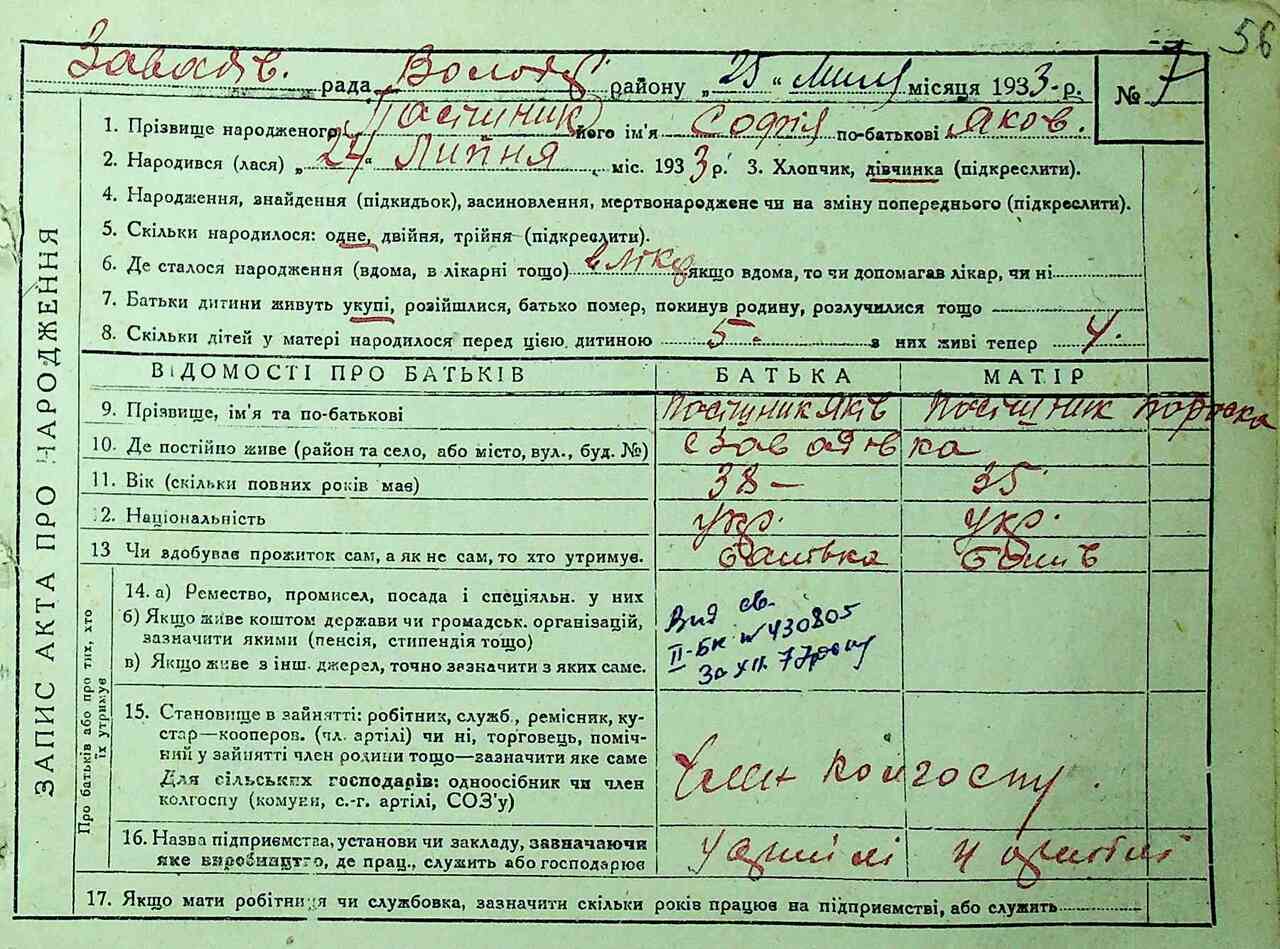 56
Завадів. рада Волод. району „25“ Липня місяця 1933 р. № 7
1. Прізвище народженого Пасічник його ім'я Софія по-батькові Яков.
2. Народився (лася) „24“ Липня міс. 1933 р. 3. Хлопчик, дівчинка (підкреслити).
4. Народження, знайдення (підкидьок), засиновлення, мертвонароджене чи на зміну попереднього (підкреслити).
5. Скільки народилося: одне, двійня, трійня (підкреслити).
6. Де сталося народження (вдома, в лікарні тощо) в ліка якщо вдома, то чи допомагав лікар, чи ні
7. Батьки дитини живуть укупі, розійшлися, батько помер, покинув родину, розлучилися тощо
8. Скільки дітей у матері народилося перед цією дитиною 5 - з них живі тепер 4.
ЗАПИС АКТА ПРО НАРОДЖЕННЯ
ВІДОМОСТІ ПРО БАТЬКІВ БАТЬКА МАТІР
9. Прізвище, ім'я та по-батькові Пасічник Яків Пасічник
10. Де постійно живе (район та село, або місто, вул., буд. №) с Завадівка
11. Вік (скільки повних років має) 38 – 35
12. Національність укр. укр.
13 Чи здобував прожиток сам, а як не сам, то хто утримує.
Про батьків або про тих, хто їх утримує
14. а) Ремество, промисел, посада і спеціяльн. у них
б) Якщо живе коштом держави чи громадськ. організацій,
зазначити якими (пенсія, стипендія тощо)
в) Якщо живе з інш. джерел, точно зазначити з яких саме.
Вид св.
II-БК № 430805
За XII. 77 року
15. Становище в зайнятті: робітник, служб., ремісник, ку-
стар—кооперов. (чл. артілі) чи ні, торговець, поміч-
ний у зайнятті член родини тощо—зазначити яке саме
Для сільських господарів: одноосібник чи член
колгоспу (комуни, с.-г. артілі, СОЗ'у)
Член колгоспу.
16. Назва підприємства, установи чи закладу, зазначаючи
яке виробництво, де прац., служить або господарює
У артілі У артілі
17. Якщо мати робітниця чи службовка, зазначити скільки років працює на підприємстві, або служить